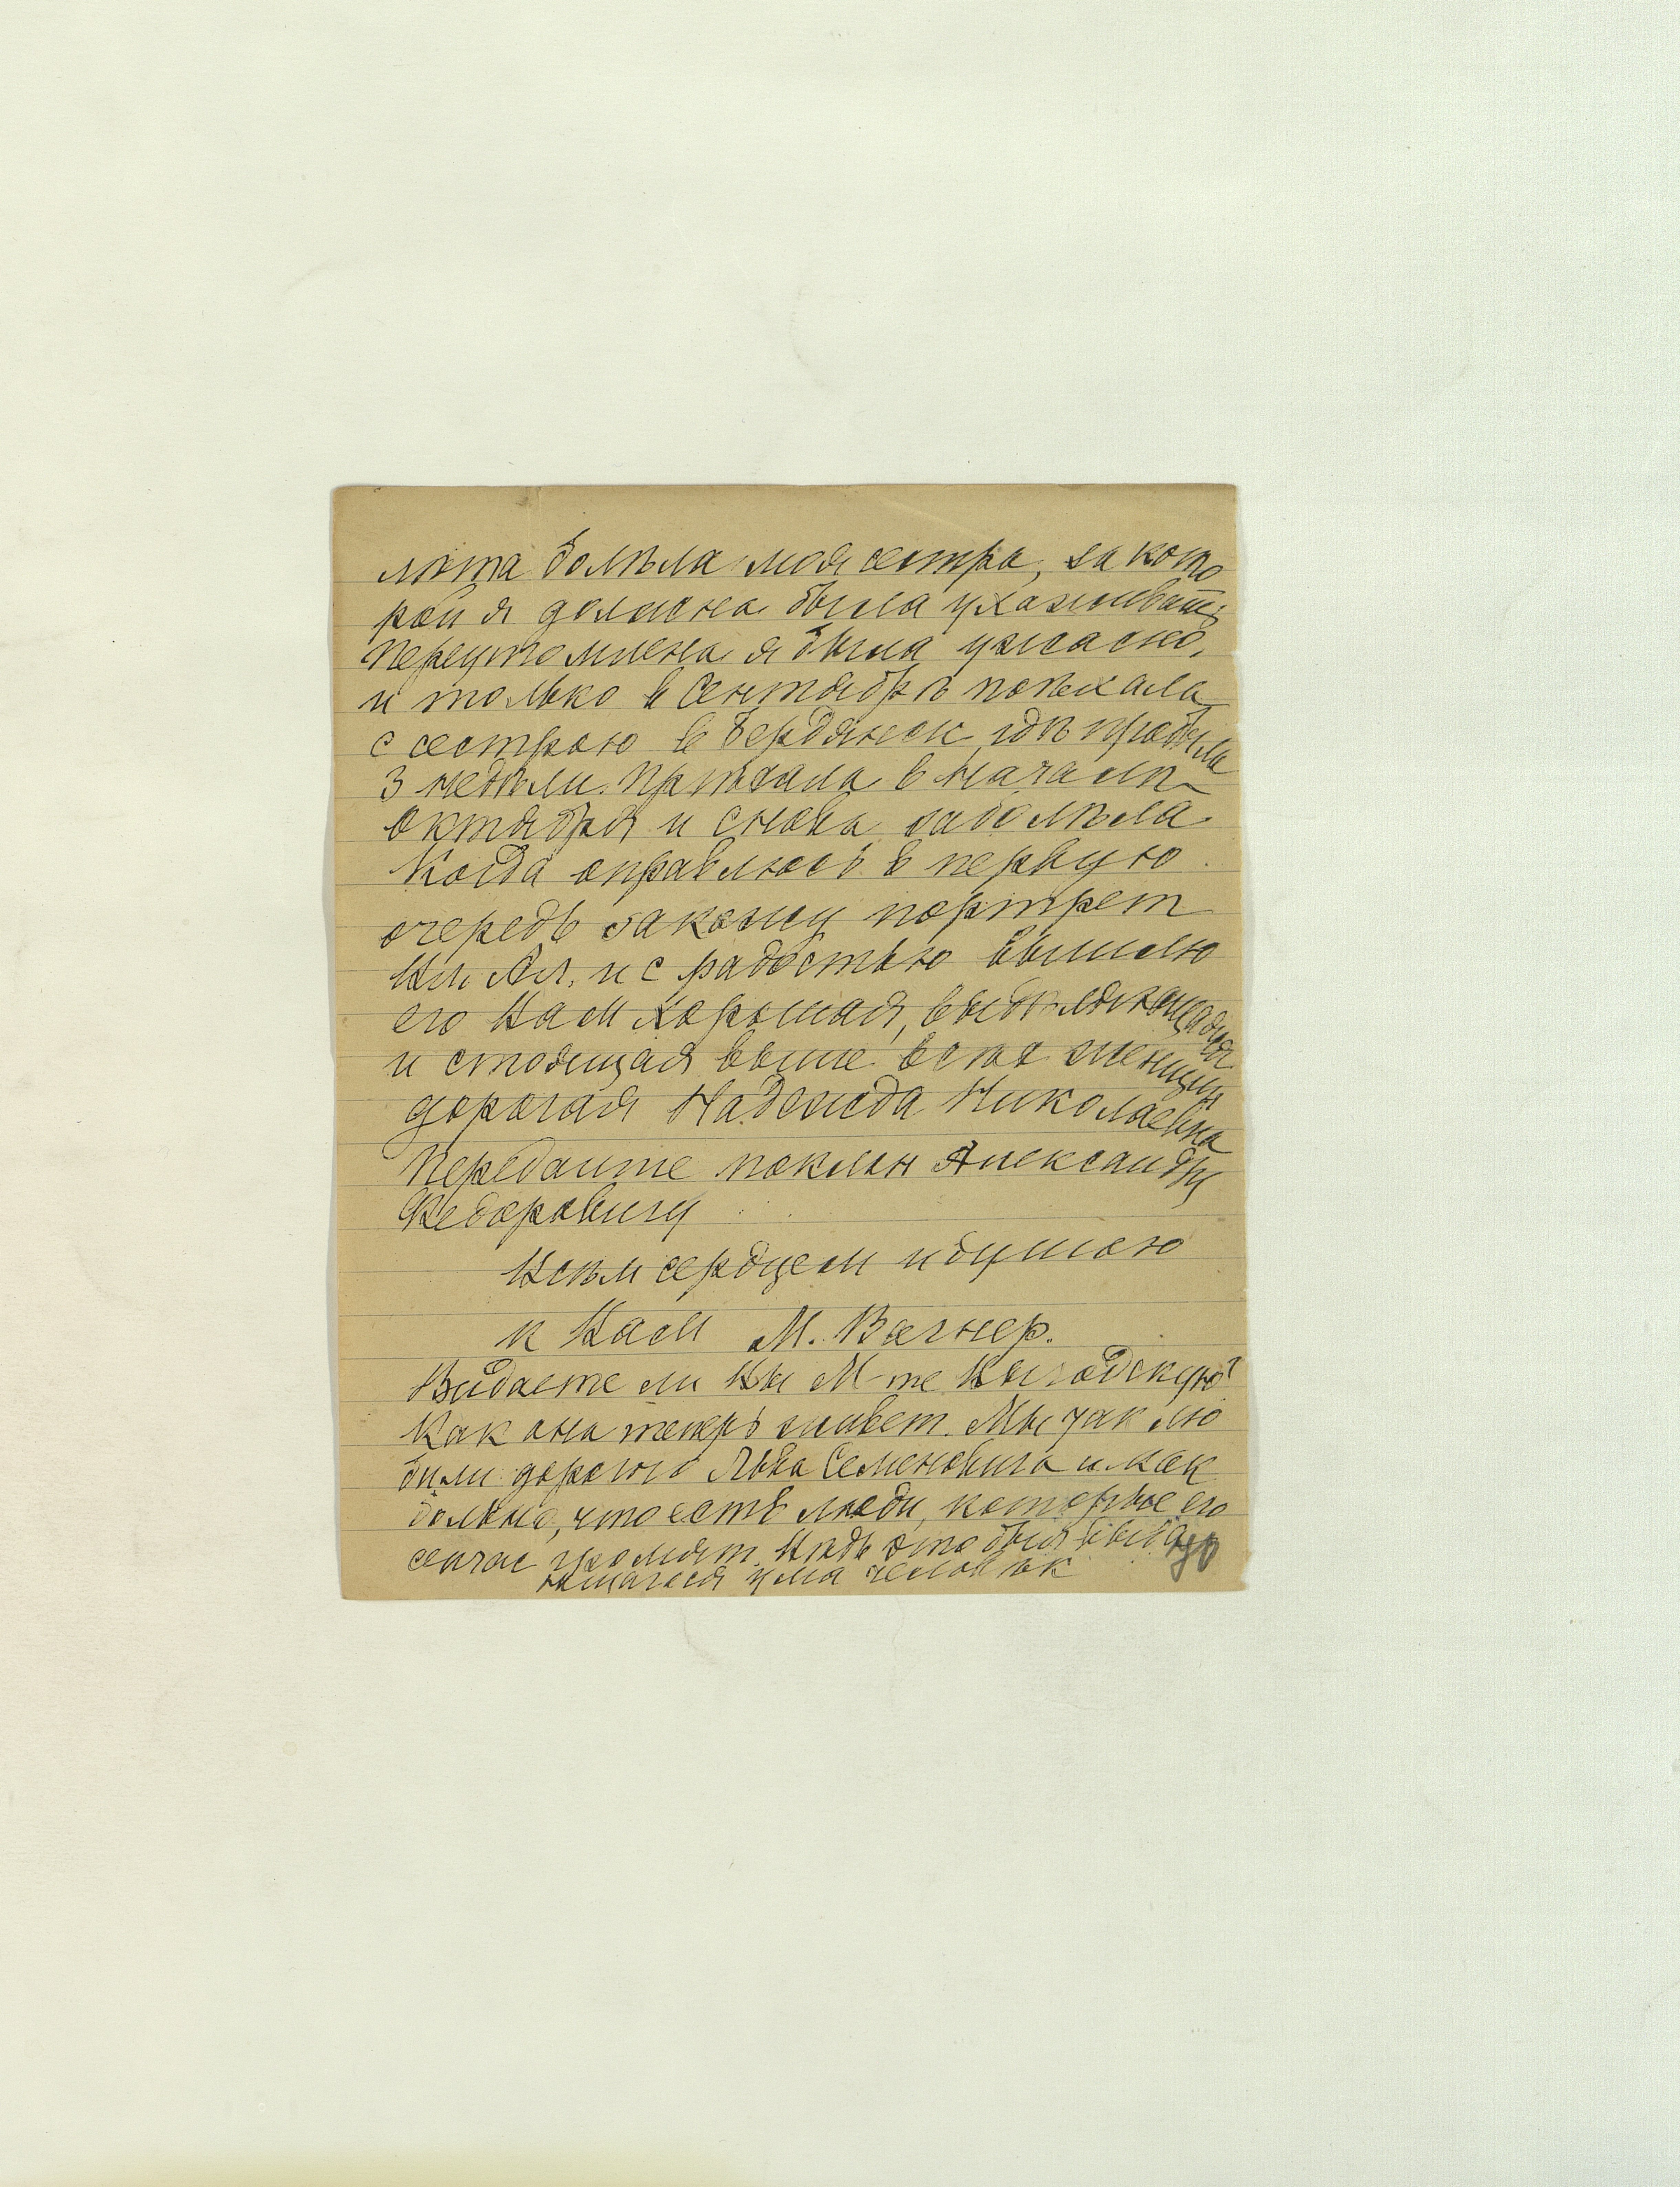 лѣта болѣла моя сестра, за кото
рой я должна была ухаживать
переутомлена я была ужасно,
и только в Сентябрѣ поѣхала
с сестрою в Бердянск, гдѣ пробыла
3 недѣли. Приѣхала в началѣ
Октября и снова заболѣла.
Когда оправлюсь в первую
очередь закажу портрет
Ил. Ал. и с радостью вышлю
его Вам Хорошая, выдѣляющаяся
и стоящая выше всѣх женщин
дорогая Надежда Николаевна
Передайте поклон Александру
Федоровичу
Всѣм сердцем и душою
к Вам М. Вагнер.
Видаете ли Вы М-me Выгодскую?
Как она теперь живет. Мы так лю
били дорогого Льва Семеновича и как
больно, что есть люди, которые его
сейчас громят. Вѣдь это был выдаю
щагося ума человѣк